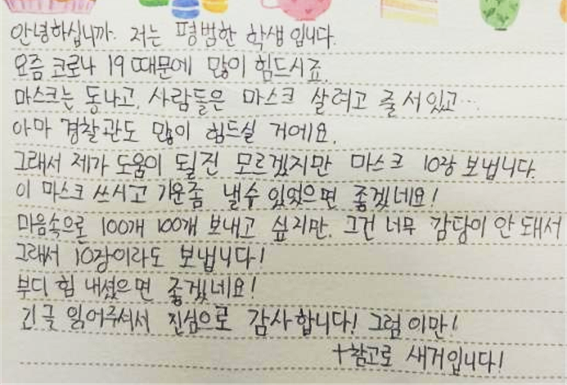 안녕하십니까. 저는 평범한 학생입니다.
요즘 코로나 19 때문에 많이 힘드시죠.
마스크는 동나고, 사람들은 마스크 살려고 줄 서있고...
아마 경찰관도 많이 힘드실 거에요.
그래서 제가 도움이 될진 모르겠지만 마스크 10장 보냅니다.
이 마스크 쓰시고 기운좀 낼수 있었으면 좋겠네요!
마음속으론 100개 100개 보내고 싶지만, 그건 너무 감당이 안 돼서
그래서 10장이라도 보냅니다!
부디 힘 내셨으면 좋겠네요!
긴글 읽어주셔서 진심으로 감사합니다! 그럼 이만!
+참고로 새거입니다!